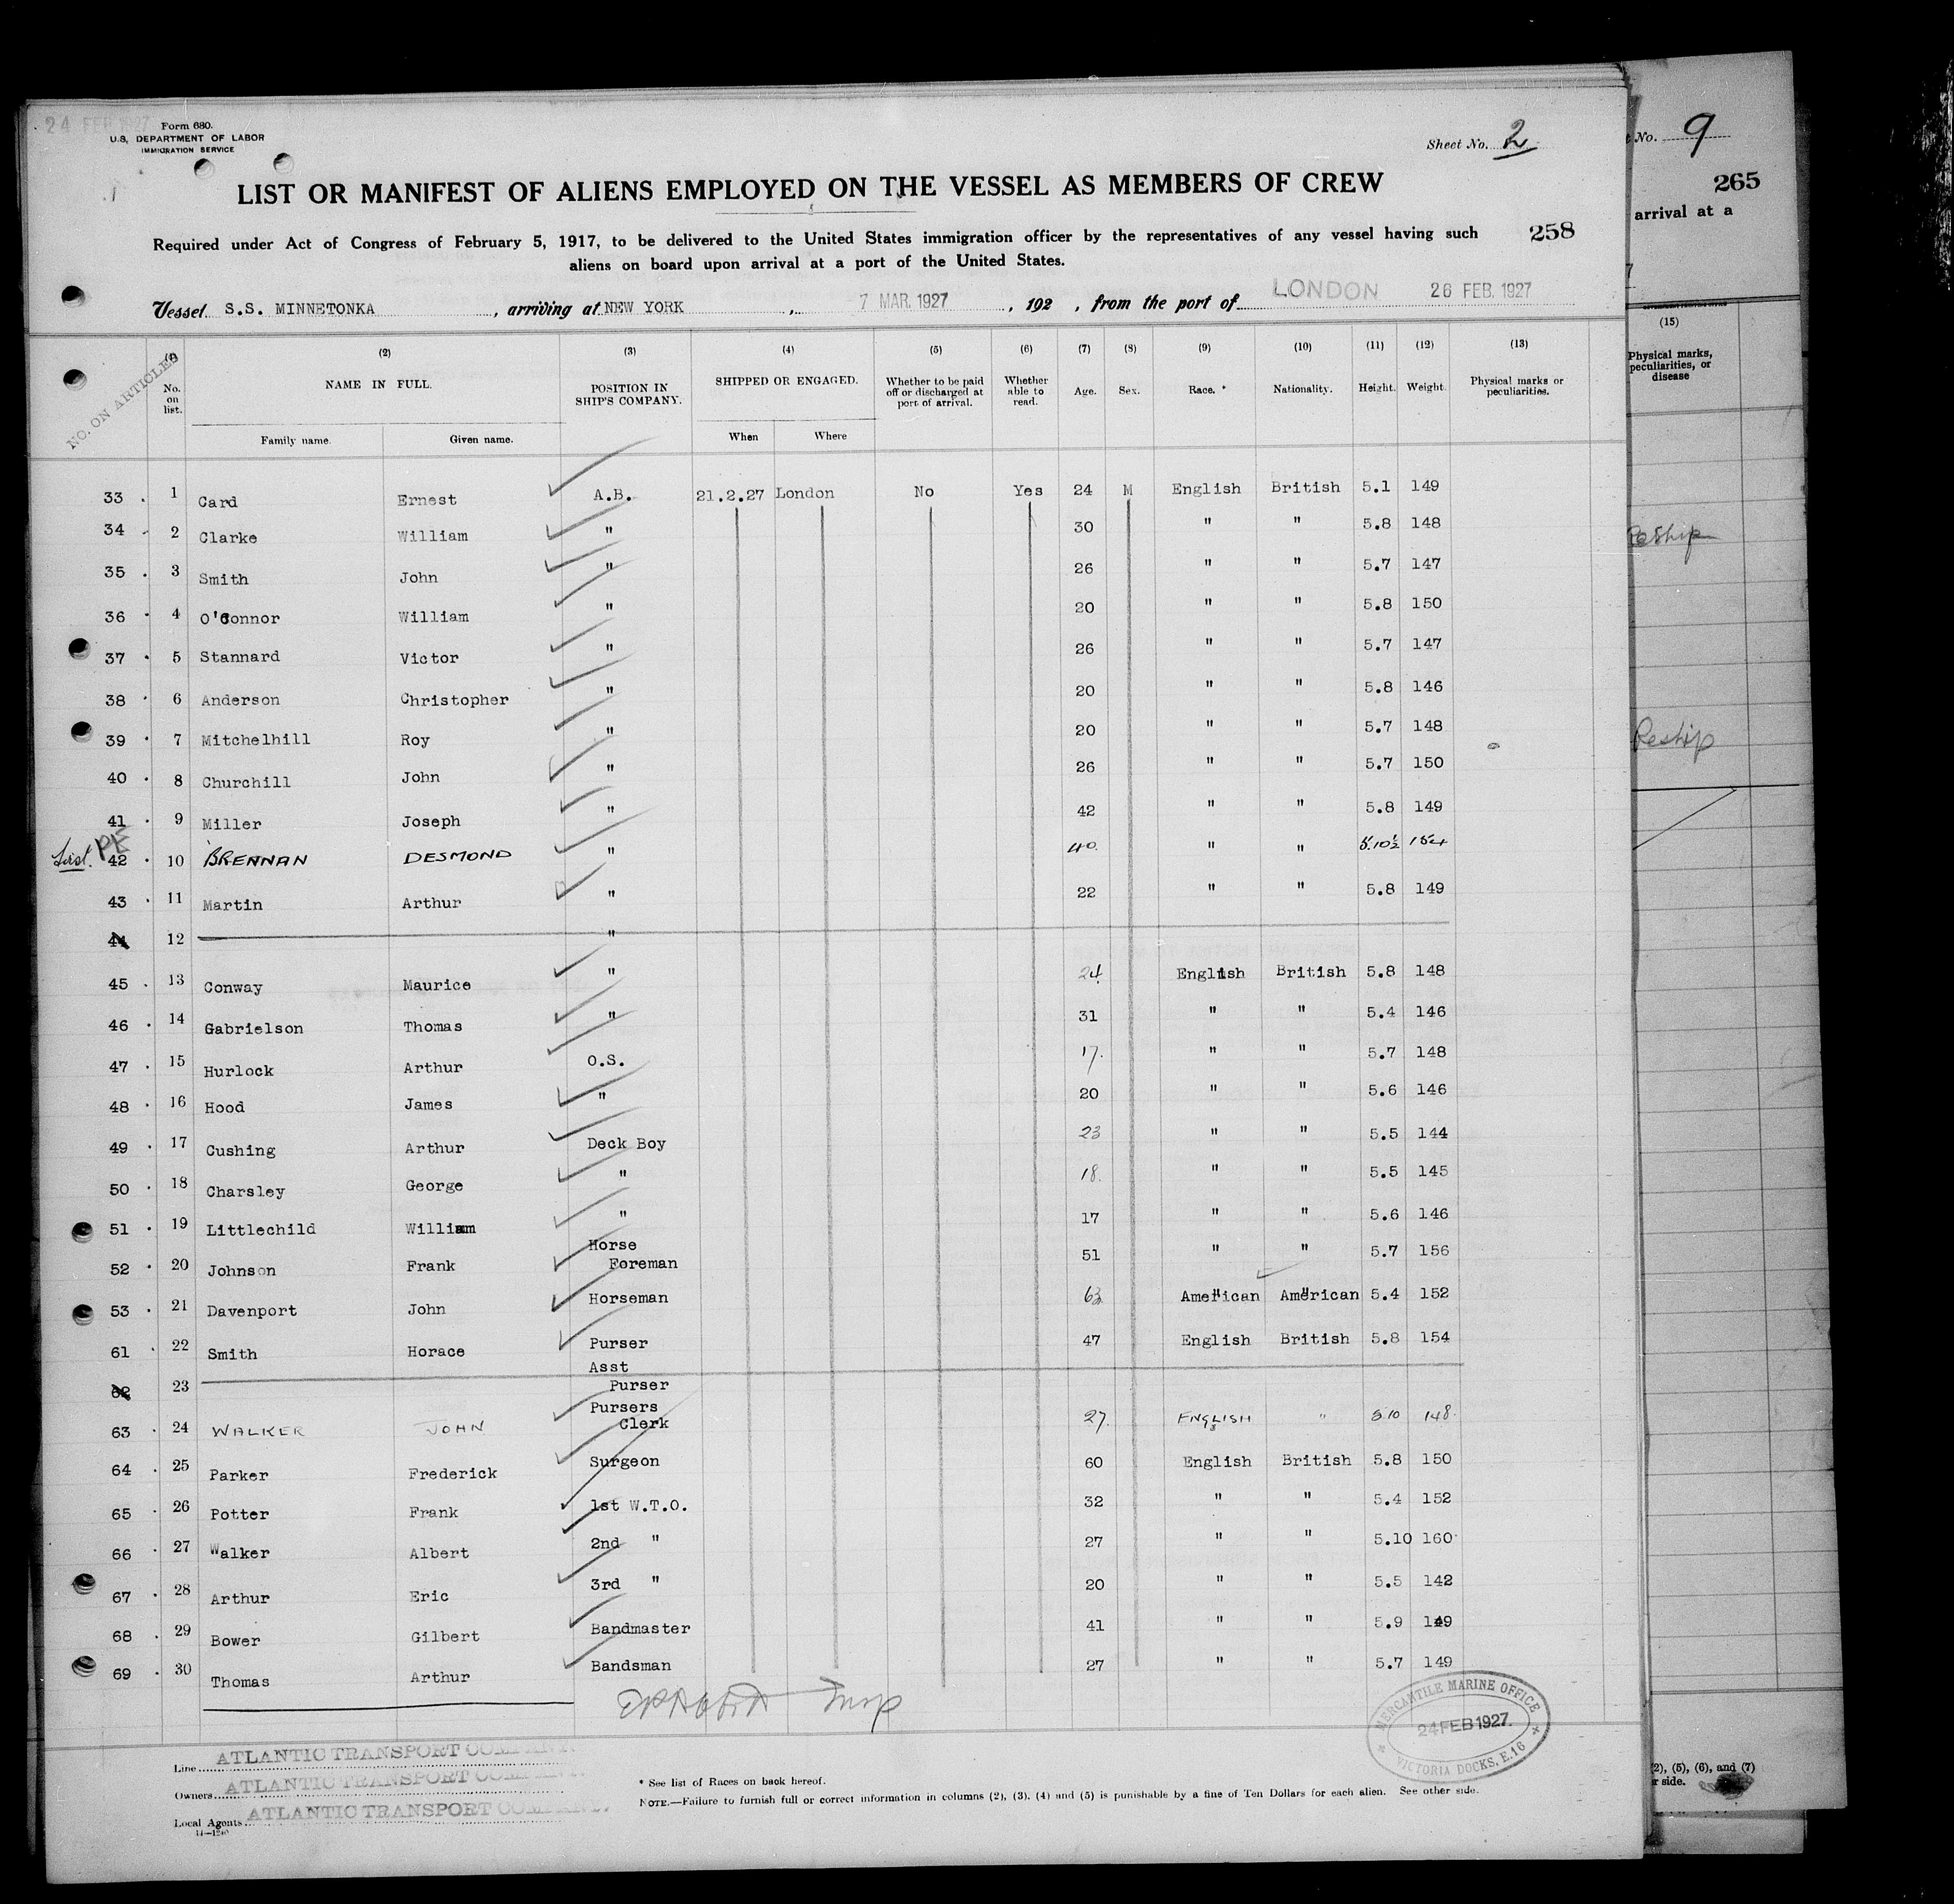 24 FEB 1927
Form 680.
U.S. DEPARTMENT OF LABOR
IMMIGRATION SERVICE
Sheet No. 2
LIST OR MANIFEST OF ALIENS EMPLOYED ON THE VESSEL AS MEMBERS OF CREW
Required under Act of Congress of February 5, 1917, to be delivered to the United States immigration officer by the representatives of any vessel having such
aliens on board upon arrival at a port of the United States.
258
Vessel S.S. MINNETONKA , arriving at NEW YORK , 7 MAR. 1927 , 192 , from the port of LONDON 26 FEB. 1927
NO. ON ARTICLES
(1) (2) (3) (4) (5) (6) (7) (8) (9) (10) (11) (12) (13)
No. on list. NAME IN FULL. POSITION IN SHIP'S COMPANY. SHIPPED OR ENGAGED. Whether to be paid off or discharged at port of arrival. Whether able to read. Age. Sex. Race. * Nationality. Height. Weight. Physical marks or peculiarities.
Family name. Given name. When Where
33 . 1 Card Ernest A.B. 21.2.27 London No Yes 24 M English British 5.1 149
34 . 2 Clarke William " 30 " " 5.8 148
35 . 3 Smith John " 26 " " 5.7 147
36 . 4 O'Connor William " 20 " " 5.8 150
37 . 5 Stannard Victor " 26 " " 5.7 147
38 . 6 Anderson Christopher " 20 " " 5.8 146
39 . 7 Mitchelhill Roy " 20 " " 5.7 148
40 . 8 Churchill John " 26 " " 5.7 150
41 . 9 Miller Joseph " 42 " " 5.8 149
PE 42 . 10 BRENNAN DESMOND " 40. " " 5.10½ 154
43 . 11 Martin Arthur " 22 " " 5.8 149
44 12 "
45 . 13 Conway Maurice " 24. English British 5.8 148
46 . 14 Gabrielson Thomas " 31 " " 5.4 146
47 . 15 Hurlock Arthur O.S. 17. " " 5.7 148
48 . 16 Hood James " 20 " " 5.6 146
49 . 17 Cushing Arthur Deck Boy 23 " " 5.5 144
50 . 18 Charsley George " 18. " " 5.5 145
51 . 19 Littlechild William " 17 " " 5.6 146
52 . 20 Johnson Frank Horse Foreman 51 " " 5.7 156
53 . 21 Davenport John Horseman 63 American American 5.4 152
61 . 22 Smith Horace Purser 47 English British 5.8 154
62 23 Asst Purser
63 . 24 WALKER JOHN Pursers Clerk 27. ENGLISH " 5.10 148.
64 . 25 Parker Frederick Surgeon 60 English British 5.8 150
65 . 26 Potter Frank 1st W.T.O. 32 " " 5.4 152
66 . 27 Walker Albert 2nd " 27 " " 5.10 160
67 . 28 Arthur Eric 3rd " 20 " " 5.5 142
68 . 29 Bower Gilbert Bandmaster 41 " " 5.9 149
69 . 30 Thomas Arthur Bandsman 27 " " 5.7 149
Insp
MERCANTILE MARINE OFFICE
24 FEB 1927.
VICTORIA DOCKS, E.16
Line ATLANTIC TRANSPORT COMPANY.
Owners ATLANTIC TRANSPORT COMPANY.
Local Agents ATLANTIC TRANSPORT COMPANY.
* See list of Races on back hereof.
NOTE.—Failure to furnish full or correct information in columns (2), (3), (4) and (5) is punishable by a fine of Ten Dollars for each alien. See other side.
t No. 9
265
arrival at a
7
(15)
Physical marks,
peculiarities, or
disease
Reship
Reship
(2), (5), (6), and (7)
r side.